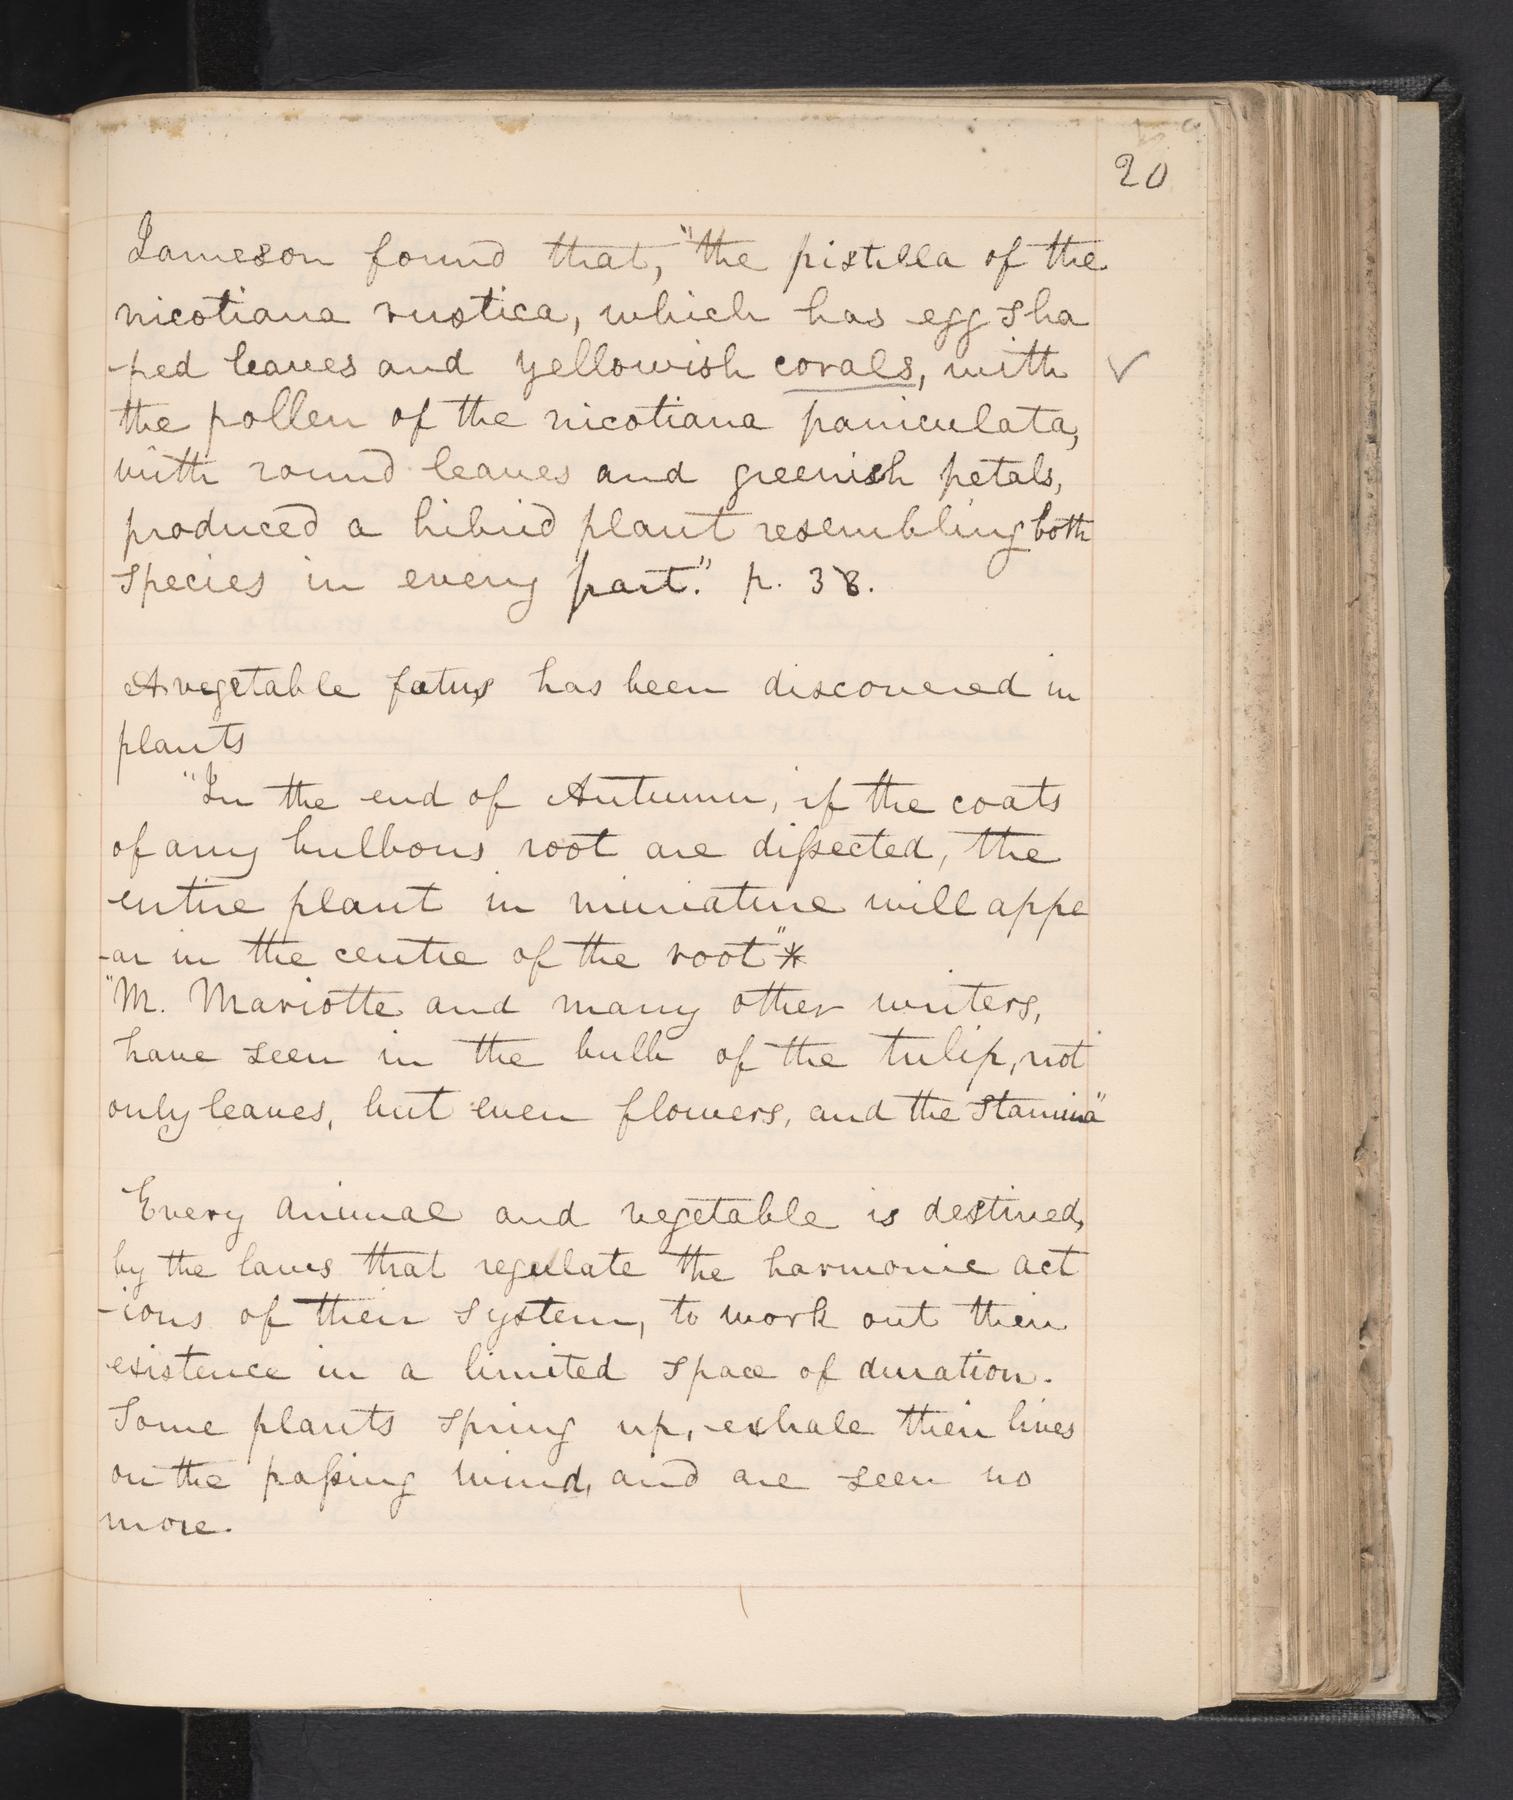 20
Jameson found that, "the pistilla of the
nicotiana rustica, which has egg sha
-ped leaves and yellowish corals, with ✓
the pollen of the nicotiana paniculata,
with round leaves and greenish petals,
produced a hibrid plant resembling both
species in every part." p. 38.
A vegetable fœtus has been discovered in
plants
"In the end of Autumn, if the coats
of any bulbous root are dissected, the
entire plant in miniature will appe
-ar in the centre of the root"*
"M. Mariotte and many other writers,
have seen in the bulb of the tulip, not
only leaves, but even flowers, and the stamina"
Every animal and vegetable is destined,
by the laws that regulate the harmonic act
-ions of their system, to work out their
existence in a limited space of duration.
Some plants spring up, exhale their lives
on the passing wind, and are seen no
more.